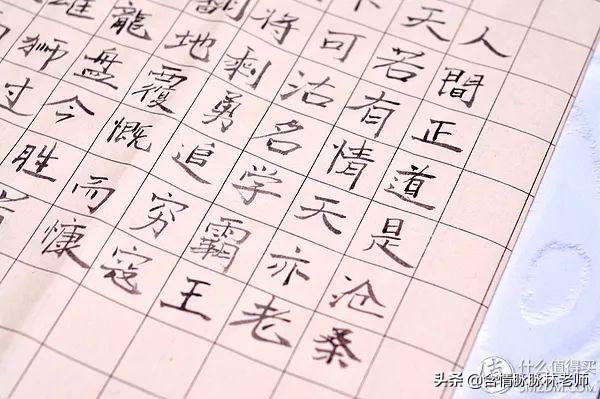 人間正道是沧桑
天若有情天亦老
可沽名学霸王
将剩勇追穷寇
地覆慨而慷
龍盘今胜
雄狮过
头条 @含情脉脉林老师
值 什么值得买
SMZDM.COM